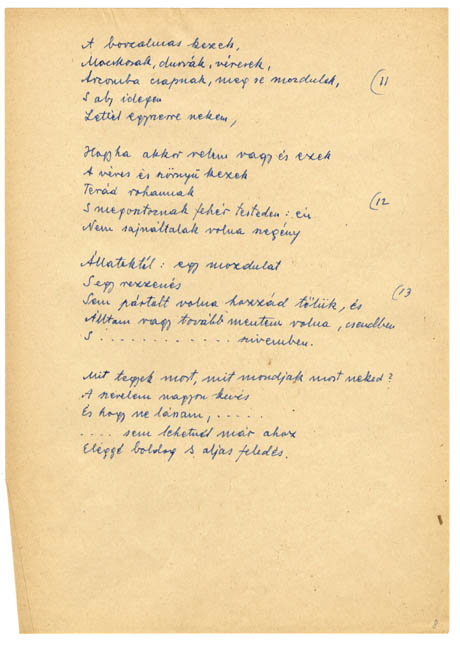 A borzalmas kezek,
Mocskosak, durvák, véresek,
Arcomba csapnak, meg se mozdulok,
(11
S oly idegen
Lettél egyszerre nekem,
Hogyha akkor velem vagy és ezek
A véres és szörnyü kezek
Terád rohannak
S megontoznak fehér testeden: én
(12
Nem sajnáltalak volna szegény
Állatoktól: egy mozdulat
S egy rezzenés
(13
Sem pártolt volna hozzád tőlük, és
Álltam vagy tovább mentem volna, csendben
S . . . . . . . . . . . . szivemben.
Mit tegyek most, mit mondjak most neked?
A szerelem nagyon kevés
És hogy ne lássam, . . . . .
. . . . sem lehetnél már ahoz
Eléggé boldog s aljas feledés.
8